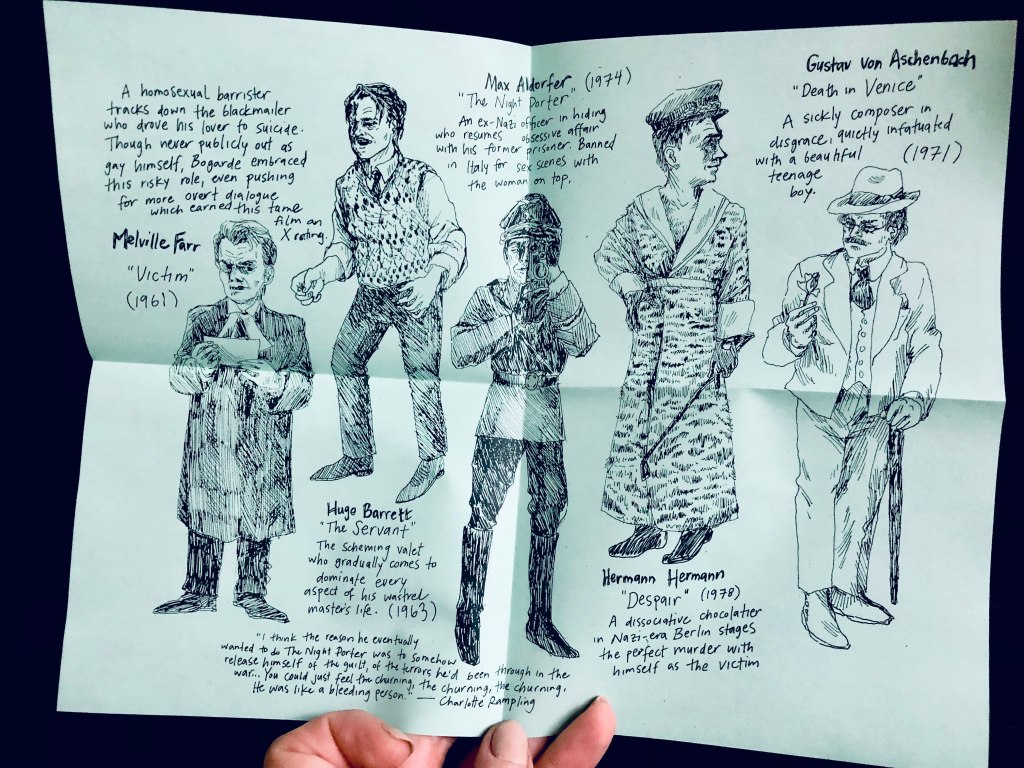 A homosexual barrister
tracks down the blackmailer
who drove his lover to suicide.
Though never publicly out as
gay himself, Bogarde embraced
this risky role, even pushing
for more overt dialogue
which earned this tame
film an
X rating.
Melville Farr
"Victim"
(1961)
Max Aldorfer (1974)
"The Night Porter"
An ex-Nazi officer in hiding
who resumes obsessive affair
with his former prisoner. Banned
in Italy for sex scenes with
the woman on top.
Gustav von Aschenbach
"Death in Venice"
A sickly composer in
disgrace, quietly infatuated
with a beautiful (1971)
teenage
boy.
Hugo Barrett
"The Servant"
The scheming valet
who gradually comes to
dominate every
aspect of his wastrel
master's life. (1963)
Hermann Hermann
"Despair" (1978)
A dissociative chocolatier
in Nazi-era Berlin stages
the perfect murder with
himself as the victim
"I think the reason he eventually
wanted to do The Night Porter was to somehow
release himself of the guilt, of the terrors he'd been through in the
war... You could just feel the churning, the churning, the churning.
He was like a bleeding person." — Charlotte Rampling